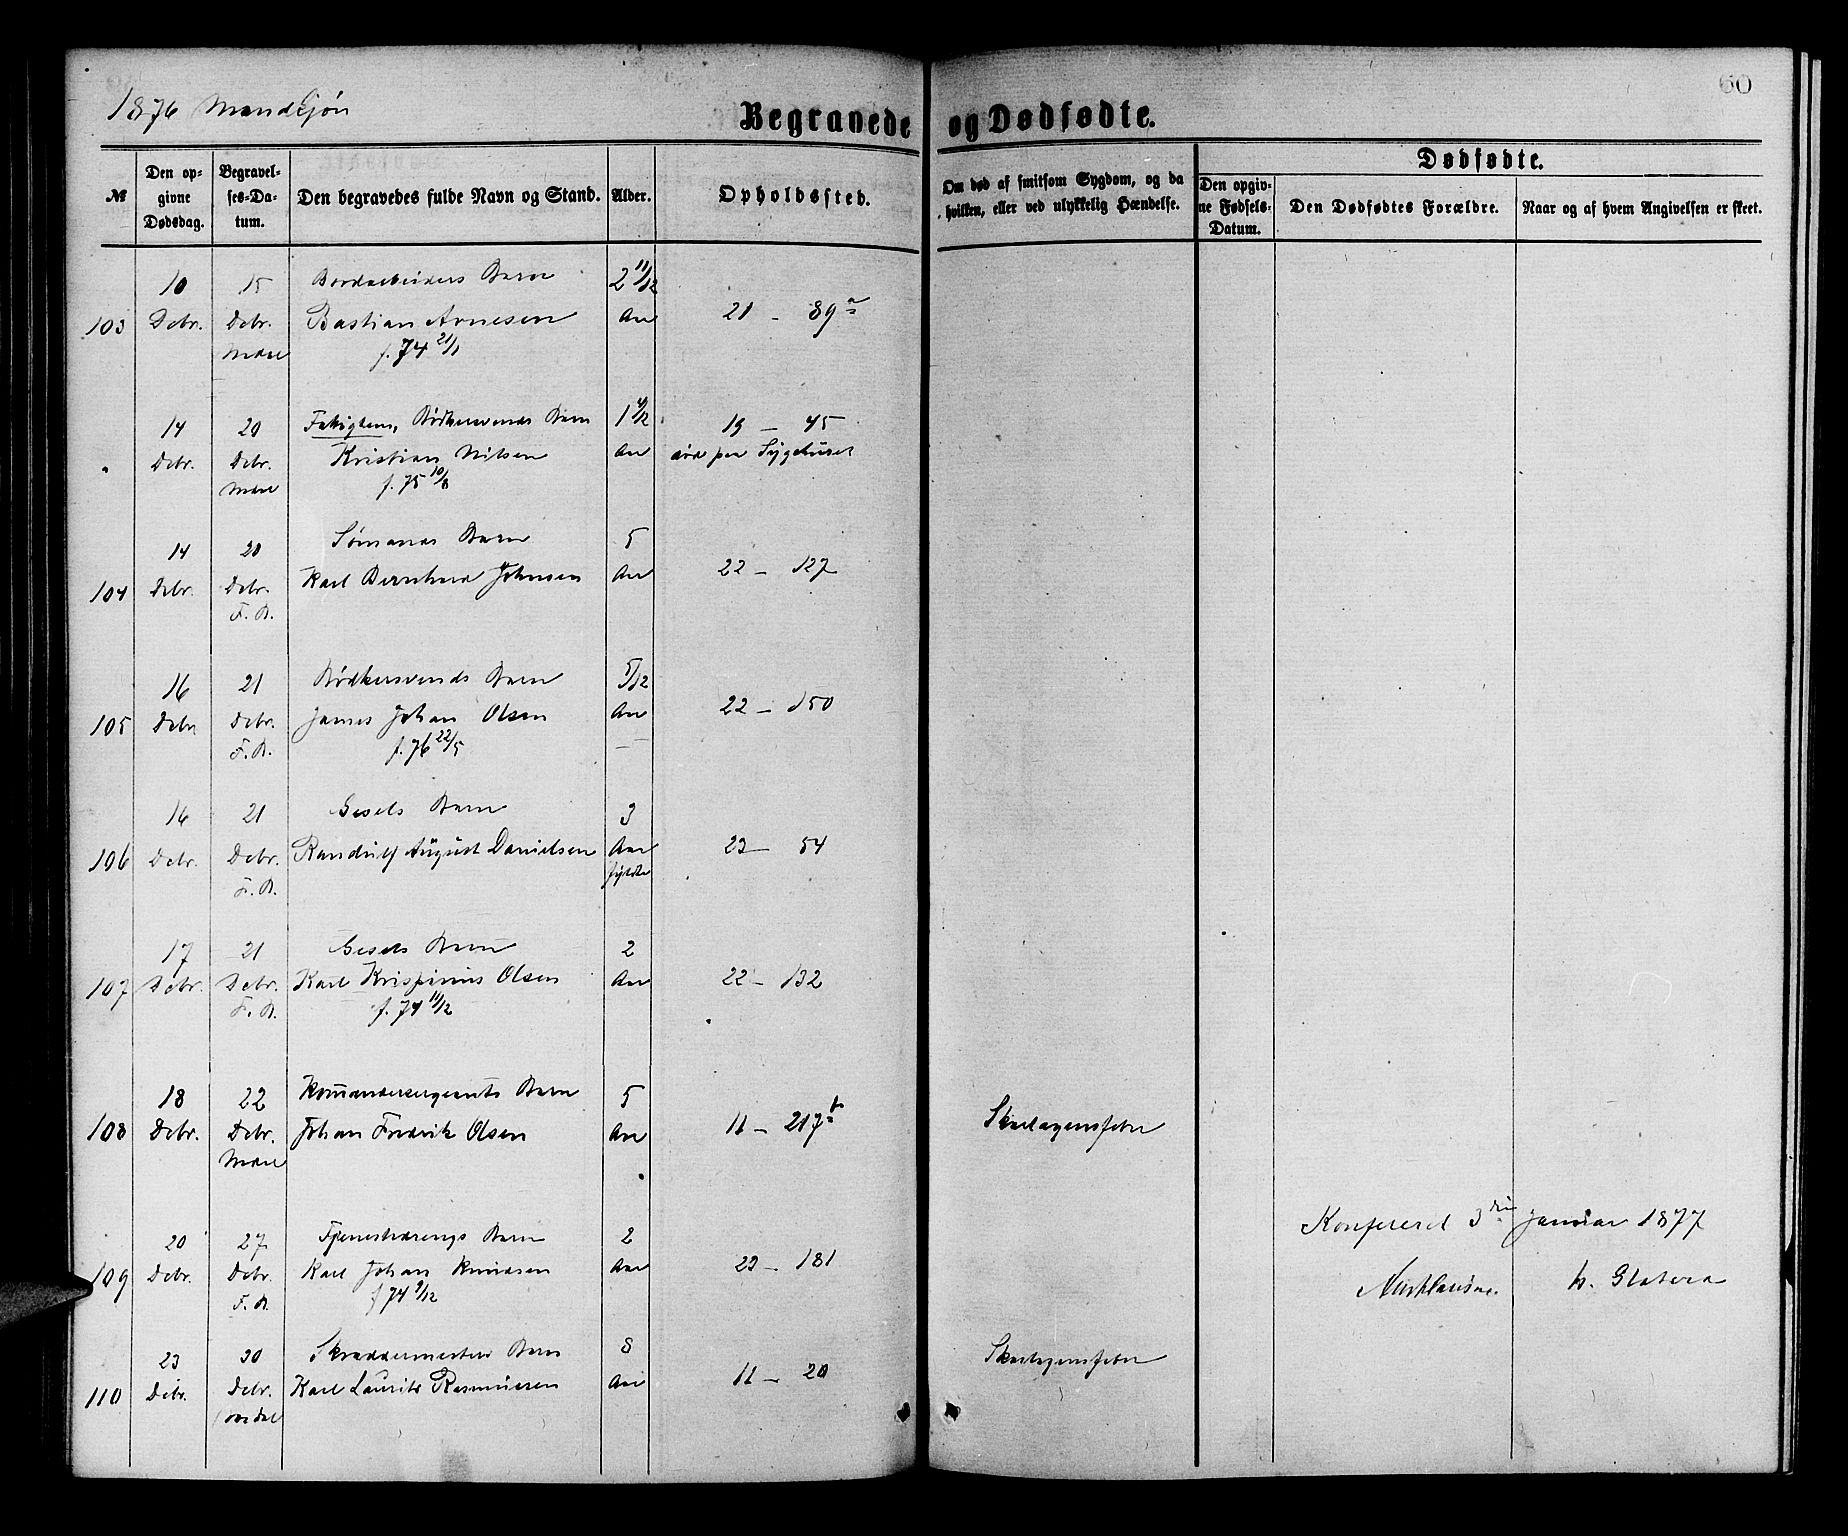 1876 Mandkjøn
Begravede og Dødfødte.
60
№
Den opgivne Dødsdag.
Begravelses-Datum.
Den begravedes fulde Navn og Stand.
Alder.
Opholdssted.
Om død af smitsom Sygdom, og da hvilken, eller ved ulykkelig Hændelse.
Dødfødte.
Den opgivne Fødsels-Datum.
Den Dødfødtes Forældre.
Naar og af hvem Angivelsen er skeet.
10 15 Bordarbeiders Barn 2 11/12
103 Debr. Debr. Bastian Arnesen Aar 21 - 89a
f. 74 21/1
14 20 Fattiglem, Bødkersvends Barn 1 4/12 19 - 45
Debr. Debr. Kristian Nilsen Aar død paa Sygehuset
f. 75 10/8
14 20 Sømands Barn 5
104 Debr. Debr. Karl Bernhard Johnsen Aar 22 - 127
F. A.
16 21 Bødkersvends Barn 5/12
105 Debr. Debr. James Johan Olsen Aar 22 - 150
F. A. f. 76 22/5
16 21 Gesels Barn 3
106 Debr. Debr. Randulf August Danielsen Aar 23 - 54
F. A. fyldte
17 21 Gesels Barn 2
107 Debr. Debr. Karl Krispinus Olsen Aar 22 - 132
F. A. f. 74 11/12
18 22 Komandersergeants Barn 5
108 Debr. Debr. Johan Fredrik Olsen Aar 11 - 217 Skarlagensfeber
20 27 Tjenestdrengs Barn 2
109 Debr. Debr. Karl Johan Knudsen Aar 23 - 181
F. A. f 74 9/12
Konfereret 3die Januar 1877
23 30 Skræddermesters Barn 8
110 Debr. Debr. Karl Laurits Rasmussen Aar 11 - 20 Skarlagensfeber